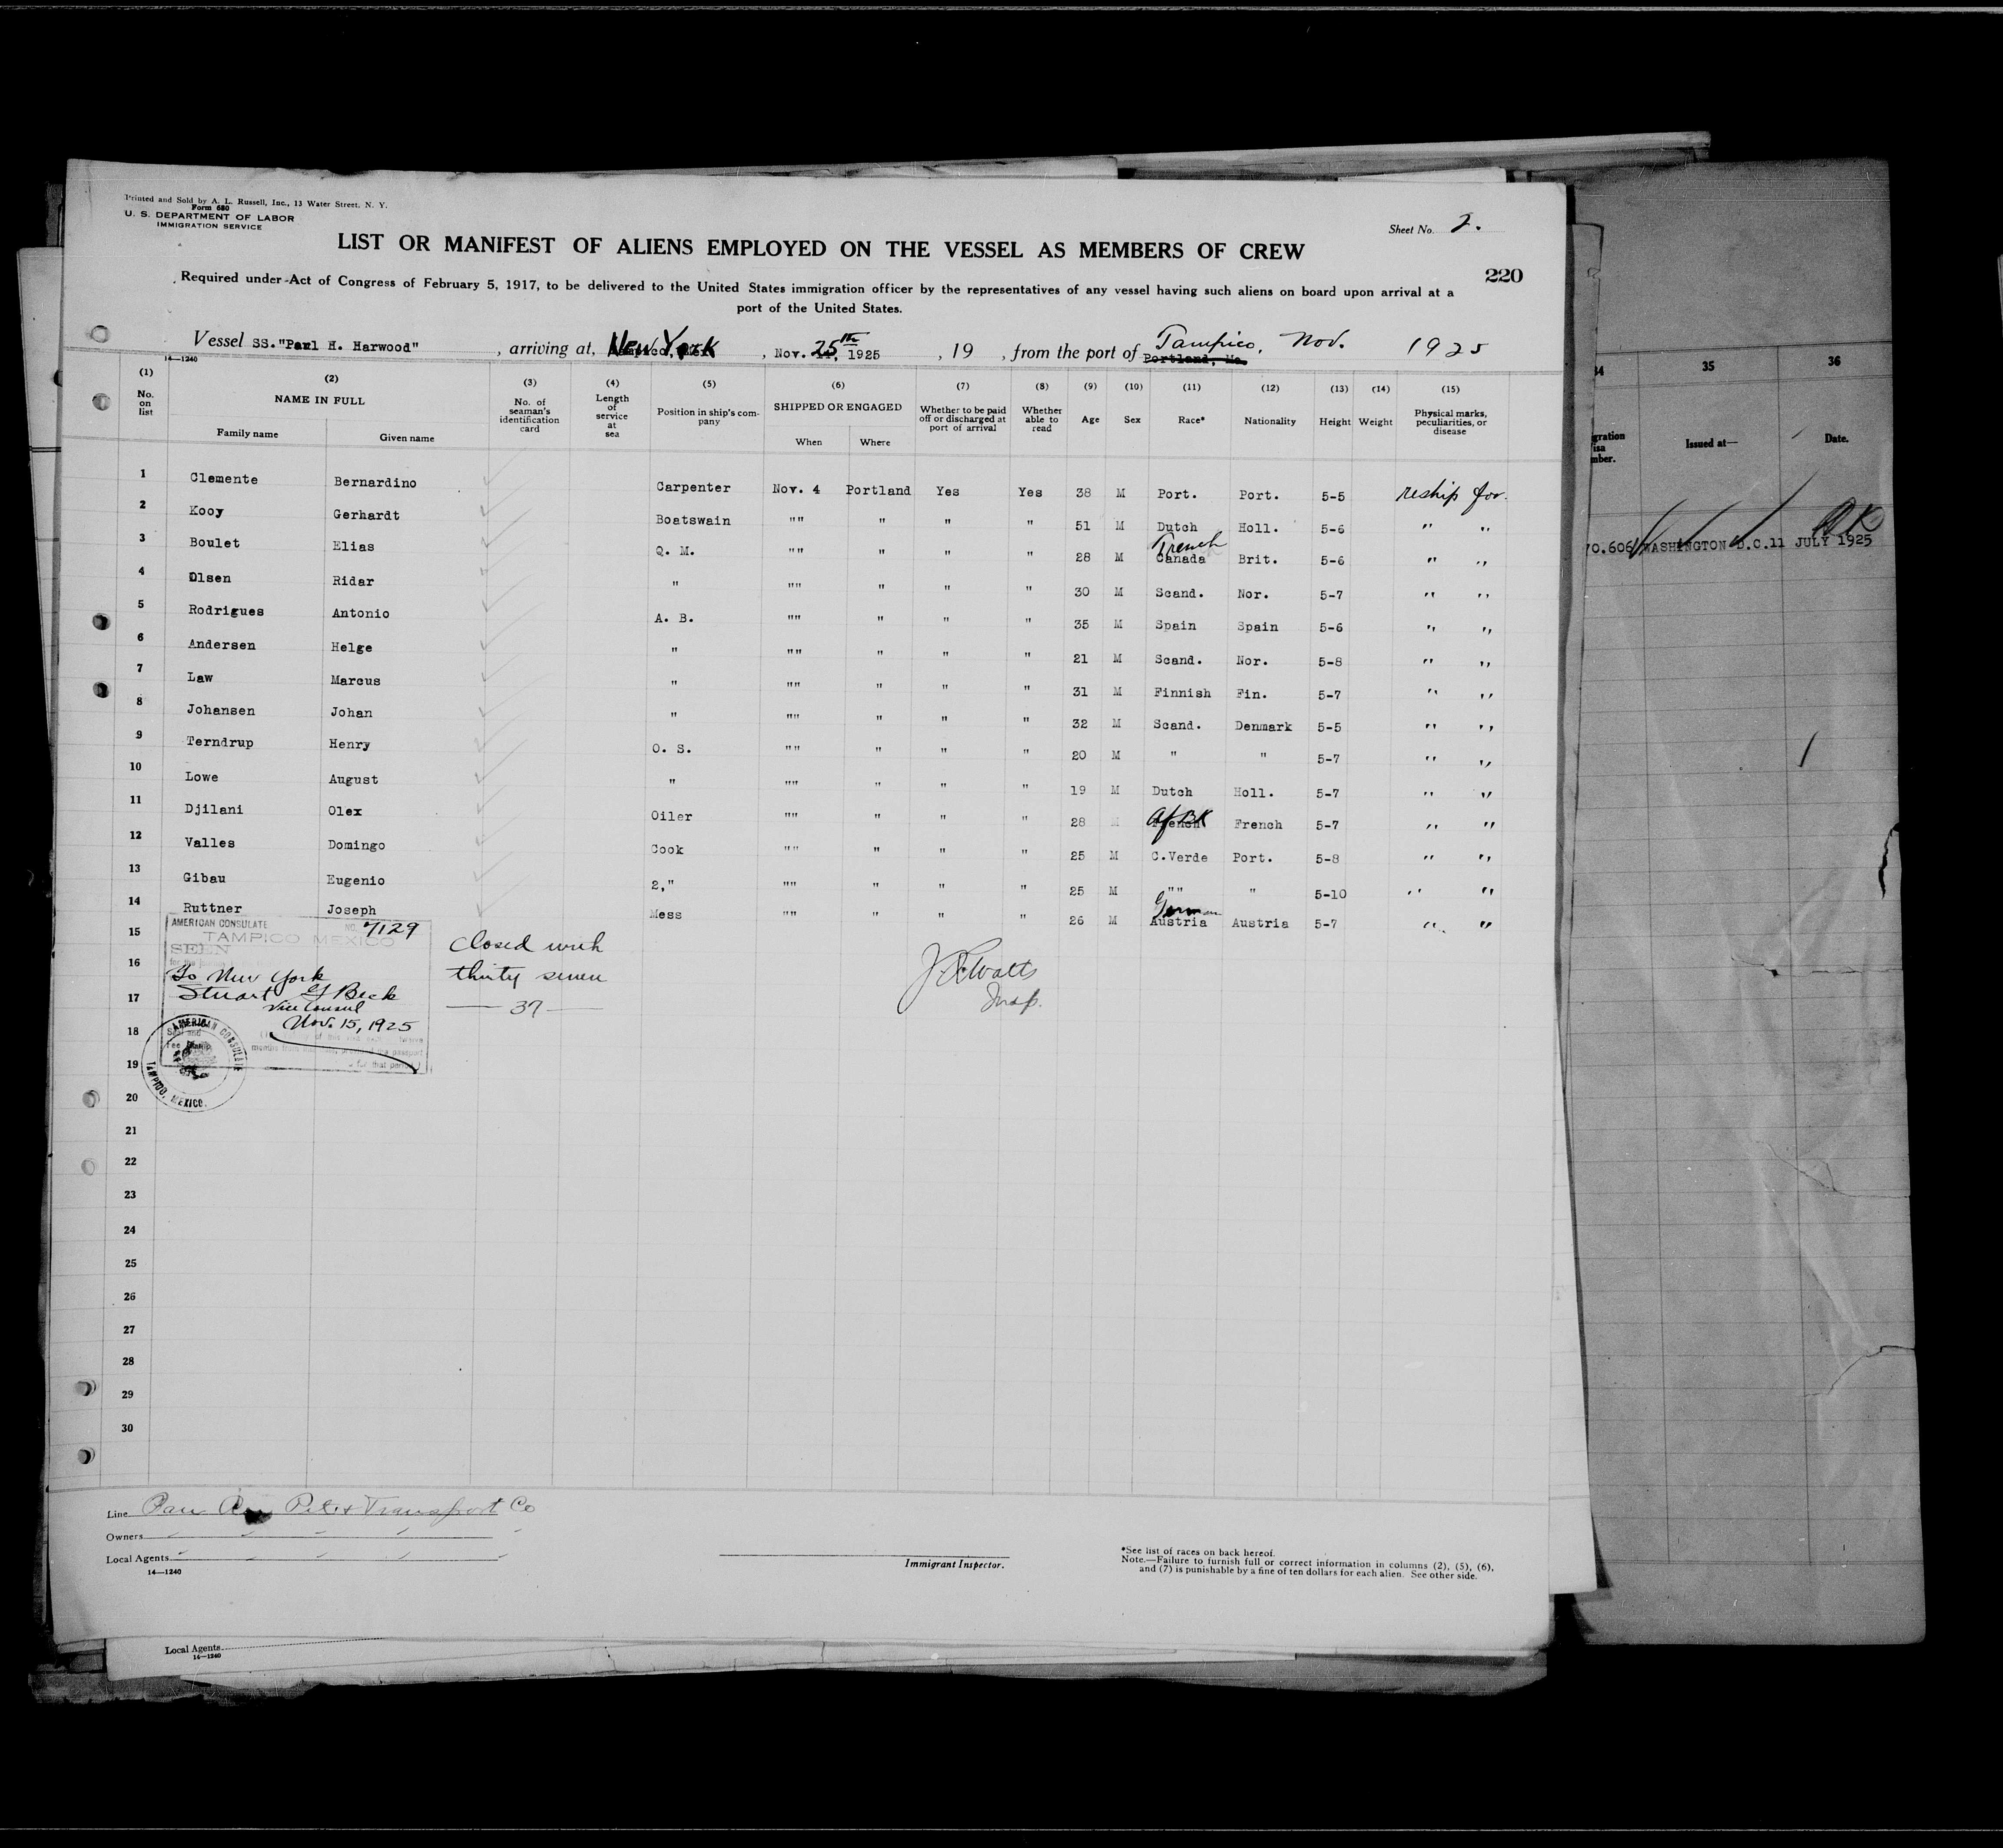 Printed and Sold by A. L. Russell, Inc., 13 Water Street, N. Y.
Form 680
U. S. DEPARTMENT OF LABOR
IMMIGRATION SERVICE
Sheet No. 2.
LIST OR MANIFEST OF ALIENS EMPLOYED ON THE VESSEL AS MEMBERS OF CREW
220
Required under Act of Congress of February 5, 1917, to be delivered to the United States immigration officer by the representatives of any vessel having such aliens on board upon arrival at a
port of the United States.
Vessel SS."Paul H. Harwood" , arriving at, New York , Nov. 25th, 1925 , 19 , from the port of Tampico, Nov. 1925
Portland, Me.
14—1240
(1) (2) (3) (4) (5) (6) (7) (8) (9) (10) (11) (12) (13) (14) (15)
No. on list NAME IN FULL No. of seaman's identification card Length of service at sea Position in ship's company SHIPPED OR ENGAGED Whether to be paid off or discharged at port of arrival Whether able to read Age Sex Race* Nationality Height Weight Physical marks, peculiarities, or disease
Family name Given name When Where
1 Clemente Bernardino Carpenter Nov. 4 Portland Yes Yes 38 M Port. Port. 5-5 reship for.
2 Kooy Gerhardt Boatswain "" " " " 51 M Dutch Holl. 5-6 " "
3 Boulet Elias Q. M. "" " " " 28 M French Canada Brit. 5-6 " "
4 Olsen Ridar " "" " " " 30 M Scand. Nor. 5-7 " "
5 Rodrigues Antonio A. B. "" " " " 35 M Spain Spain 5-6 " "
6 Andersen Helge " "" " " " 21 M Scand. Nor. 5-8 " "
7 Law Marcus " "" " " " 31 M Finnish Fin. 5-7 " "
8 Johansen Johan " "" " " " 32 M Scand. Denmark 5-5 " "
9 Terndrup Henry O. S. "" " " " 20 M " " 5-7 " "
10 Lowe August " "" " " " 19 M Dutch Holl. 5-7 " "
11 Djilani Olex Oiler "" " " " 28 M Af Bk French 5-7 " "
12 Valles Domingo Cook "" " " " 25 M C.Verde Port. 5-8 " "
13 Gibau Eugenio 2," "" " " " 25 M "" " 5-10 " "
14 Ruttner Joseph Mess "" " " " 26 M German Austria Austria 5-7 " "
15
16
17
18
19
20
21
22
23
24
25
26
27
28
29
30
AMERICAN CONSULATE NO. 7129
TAMPICO MEXICO
SEEN
To New York
Stuart G Beck
Vice Consul
Nov. 15, 1925
AMERICAN CONSULATE
TAMPICO, MEXICO.
Closed with
thirty seven
— 37 —
Watts
Insp.
Line Pan Am Pet & Transport Co
Owners
Local Agents
14—1240
Immigrant Inspector.
*See list of races on back hereof.
Note.—Failure to furnish full or correct information in columns (2), (5), (6),
and (7) is punishable by a fine of ten dollars for each alien. See other side.
Local Agents
14—1240
34 35 36
Issued at— Date.
OK
70.606 WASHINGTON D.C. 11 JULY 1925